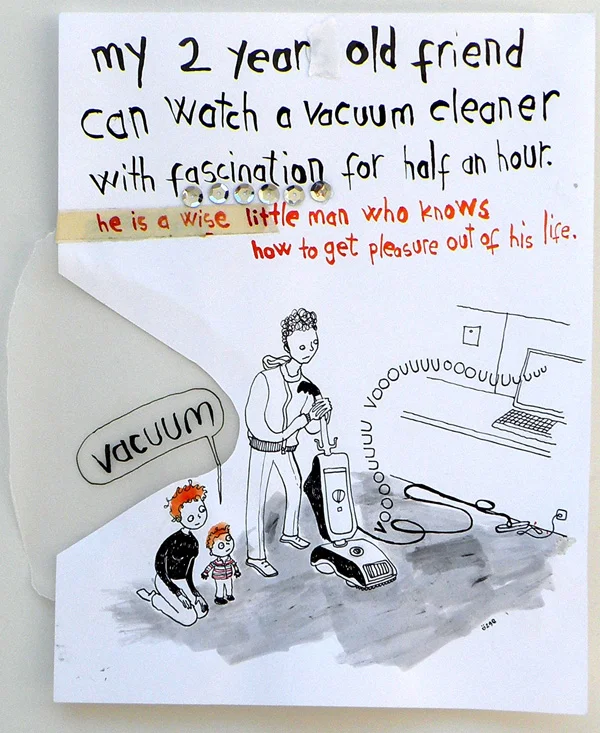 my 2 year old friend
can watch a vacuum cleaner
with fascination for half an hour.
he is a wise little man who knows
how to get pleasure out of his life.
VOOOUUUU VOOOUUUUOOOOUUUUUUuuu
vacuum